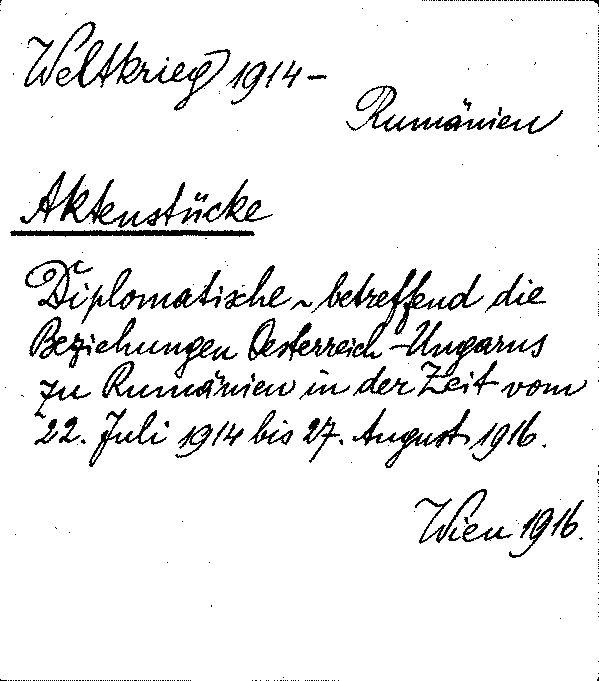 Weltkrieg 1914-
Rumänien
Aktenstücke
Diplomatische ~ betreffend die
Beziehungen Oesterreich-Ungarns
zu Rumänien in der Zeit vom
22. Juli 1914 bis 27. August 1916.
Wien 1916.